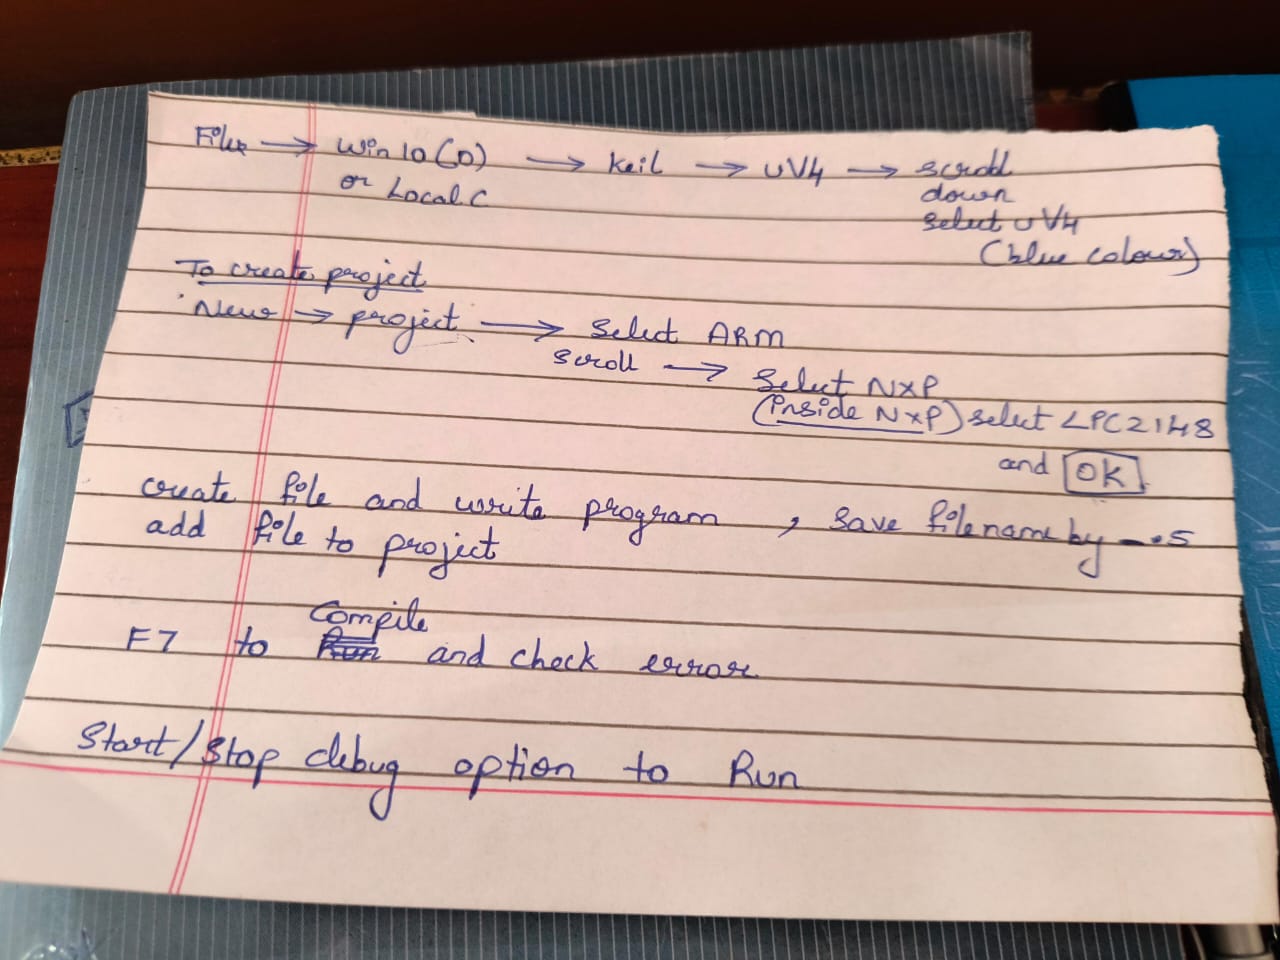 Files → Win 10 (D) → Keil → UV4 → scroll
or Local C
down
select UV4
(blue colour)
To create project
New → project → Select ARM
scroll → Select NXP
(inside NXP) select LPC2148
and OK
create file and write program , save filename by —.s
add file to project
Compile
F7 to Run and check error
Start/Stop debug option to Run